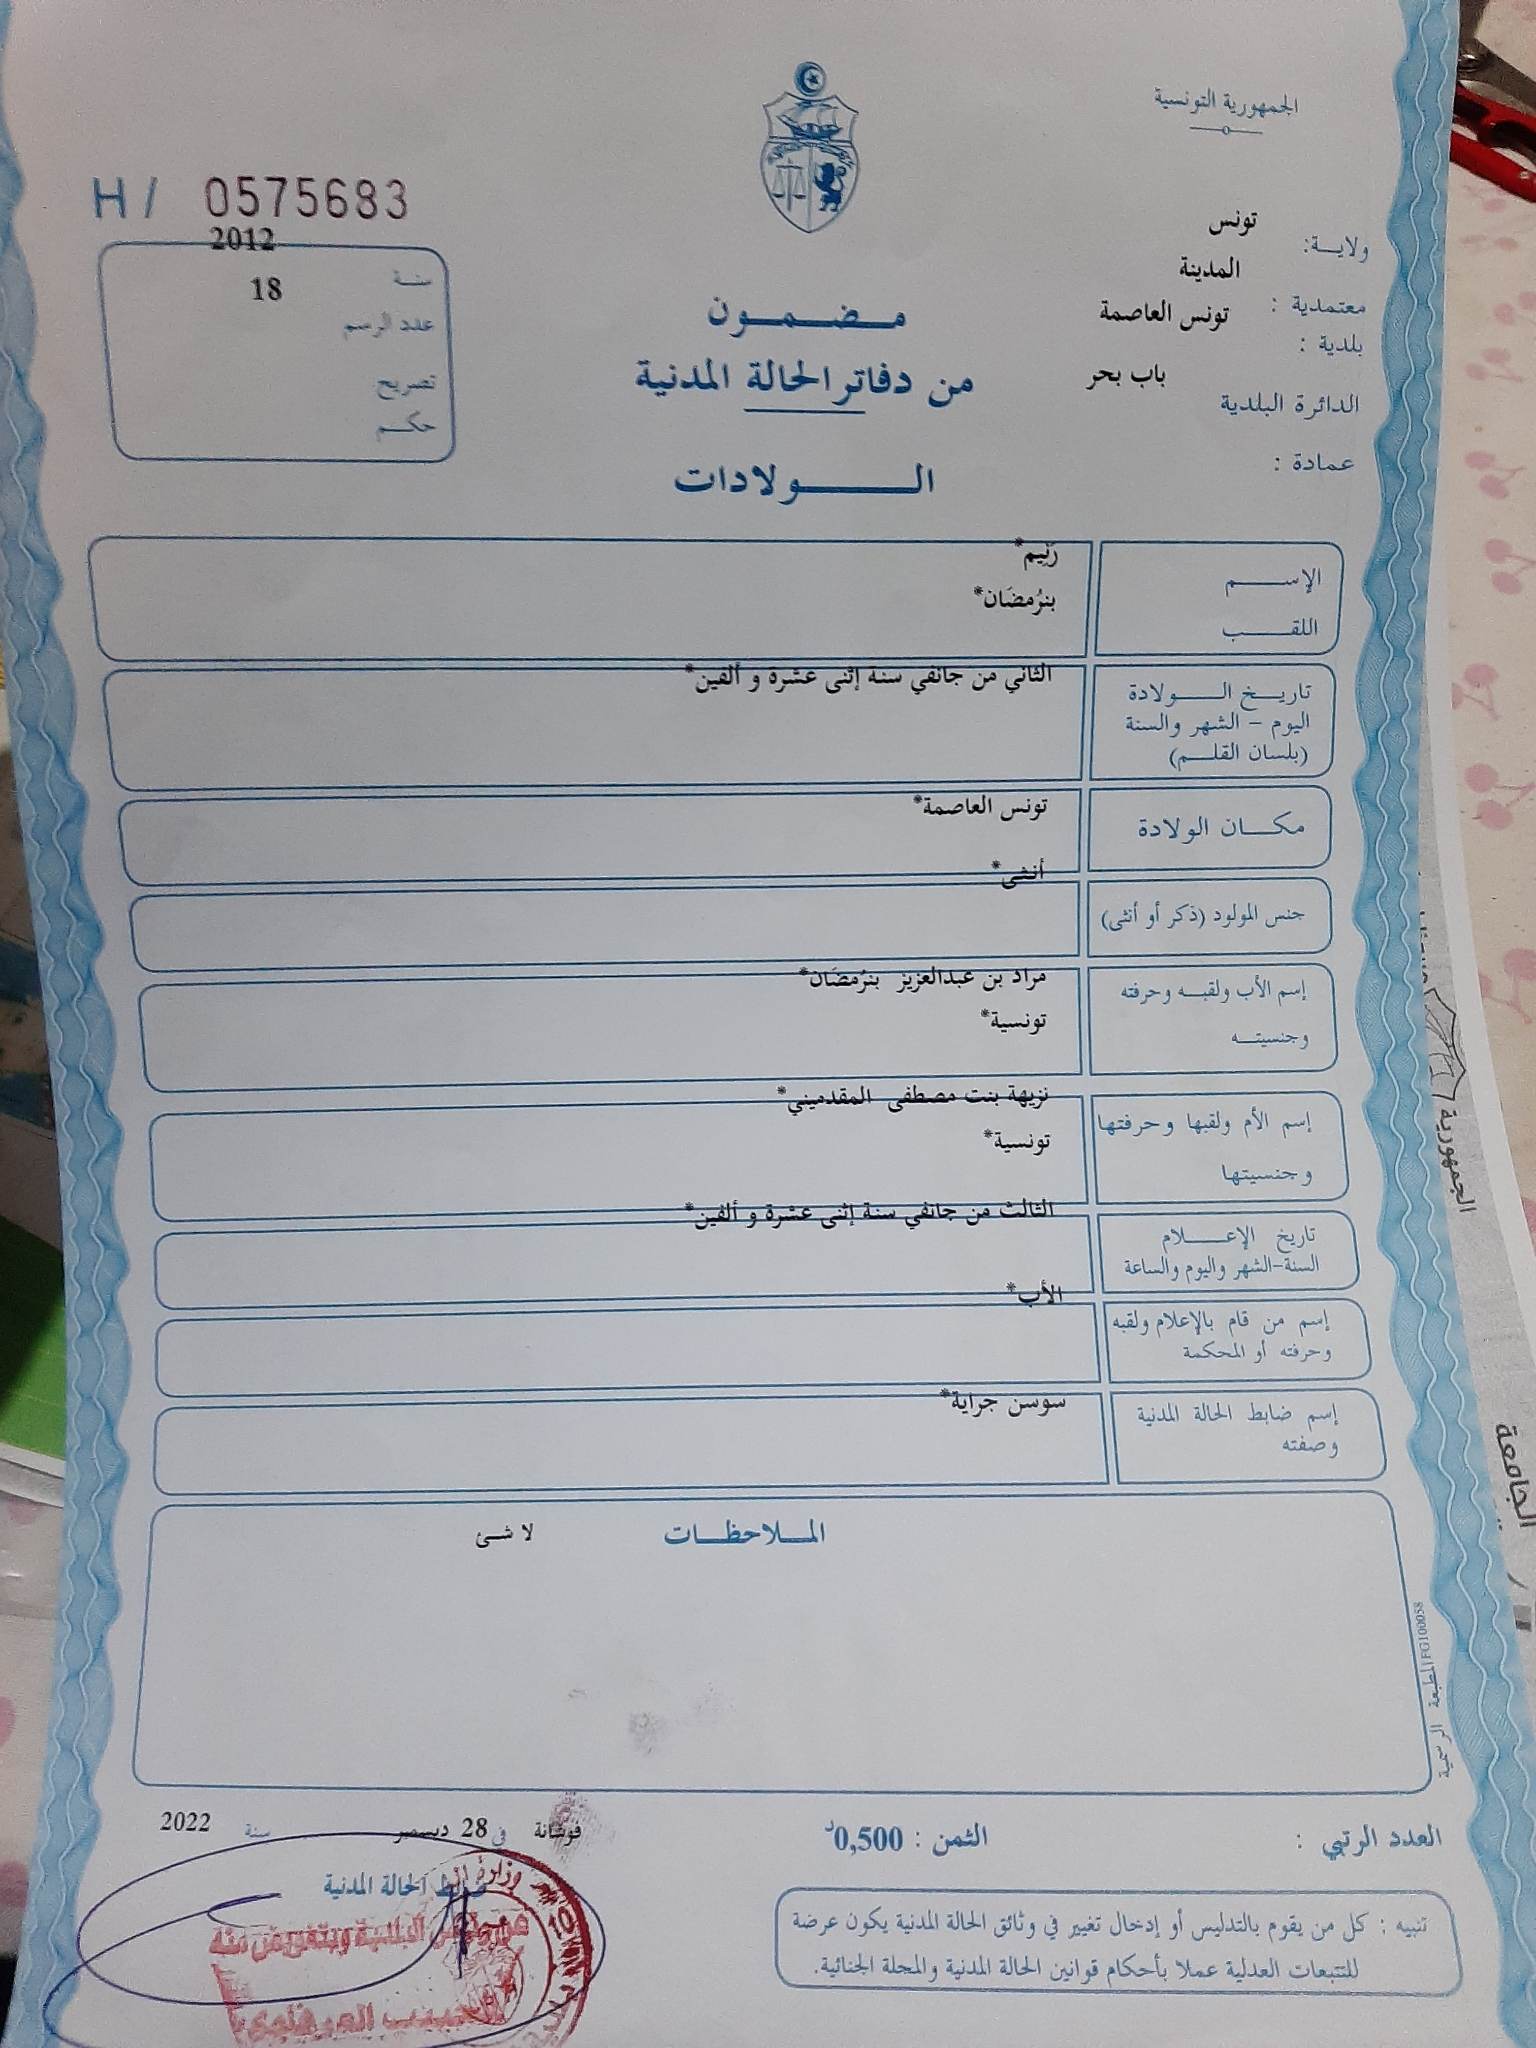 الجمهورية التونسية
H / 0575683
ولايـــة: تونس
معتمدية : المدينة
بلدية : تونس العاصمة
الدائرة البلدية باب بحر
عمادة :
سنـــة 2012
عدد الرسم 18
تصريح
حكـــم
مـــضـــمـــون
من دفاتر الحالة المدنية
الـــــولادات
الإســـــم رَنِيم*
اللقـــــب بنرُمضَان*
تاريـــخ الـــــولادة
اليوم – الشهر والسنة
(بلسان القلـــم)
الثاني من جانفي سنة إثنى عشرة و ألفين*
مكـــان الولادة تونس العاصمة*
جنس المولود (ذكر أو أنثى) أنثى*
إسم الأب ولقبـــه وحرفته مراد بن عبدالعزيز بنرُمضَان*
وجنسيتـــه تونسية*
إسم الأم ولقبها وحرفتها نزيهة بنت مصطفى المقدميني*
وجنسيتها تونسية*
تاريخ الإعـــــلام
السنة-الشهر واليوم والساعة
الثالث من جانفي سنة إثنى عشرة و ألفين*
إسم من قام بالإعلام ولقبه
وحرفته أو المحكمة
الأب*
إسم ضابط الحالة المدنية
وصفته
سوسن جراية*
المـــلاحظـــات لا شئ
المطبعة الرسمية FG100058
العدد الرتبي :
الثمن : 0,500د
فوشانة في 28 ديسمبر سنة 2022
ضابط الحالة المدنية
تنبيه : كل من يقوم بالتدليس أو إدخال تغيير في وثائق الحالة المدنية يكون عرضة
للتتبعات العدلية عملا بأحكام قوانين الحالة المدنية والمجلة الجنائية.
وزارة
عن رئيس البلدية وبتفويض منه
الجمهورية
الجامعة